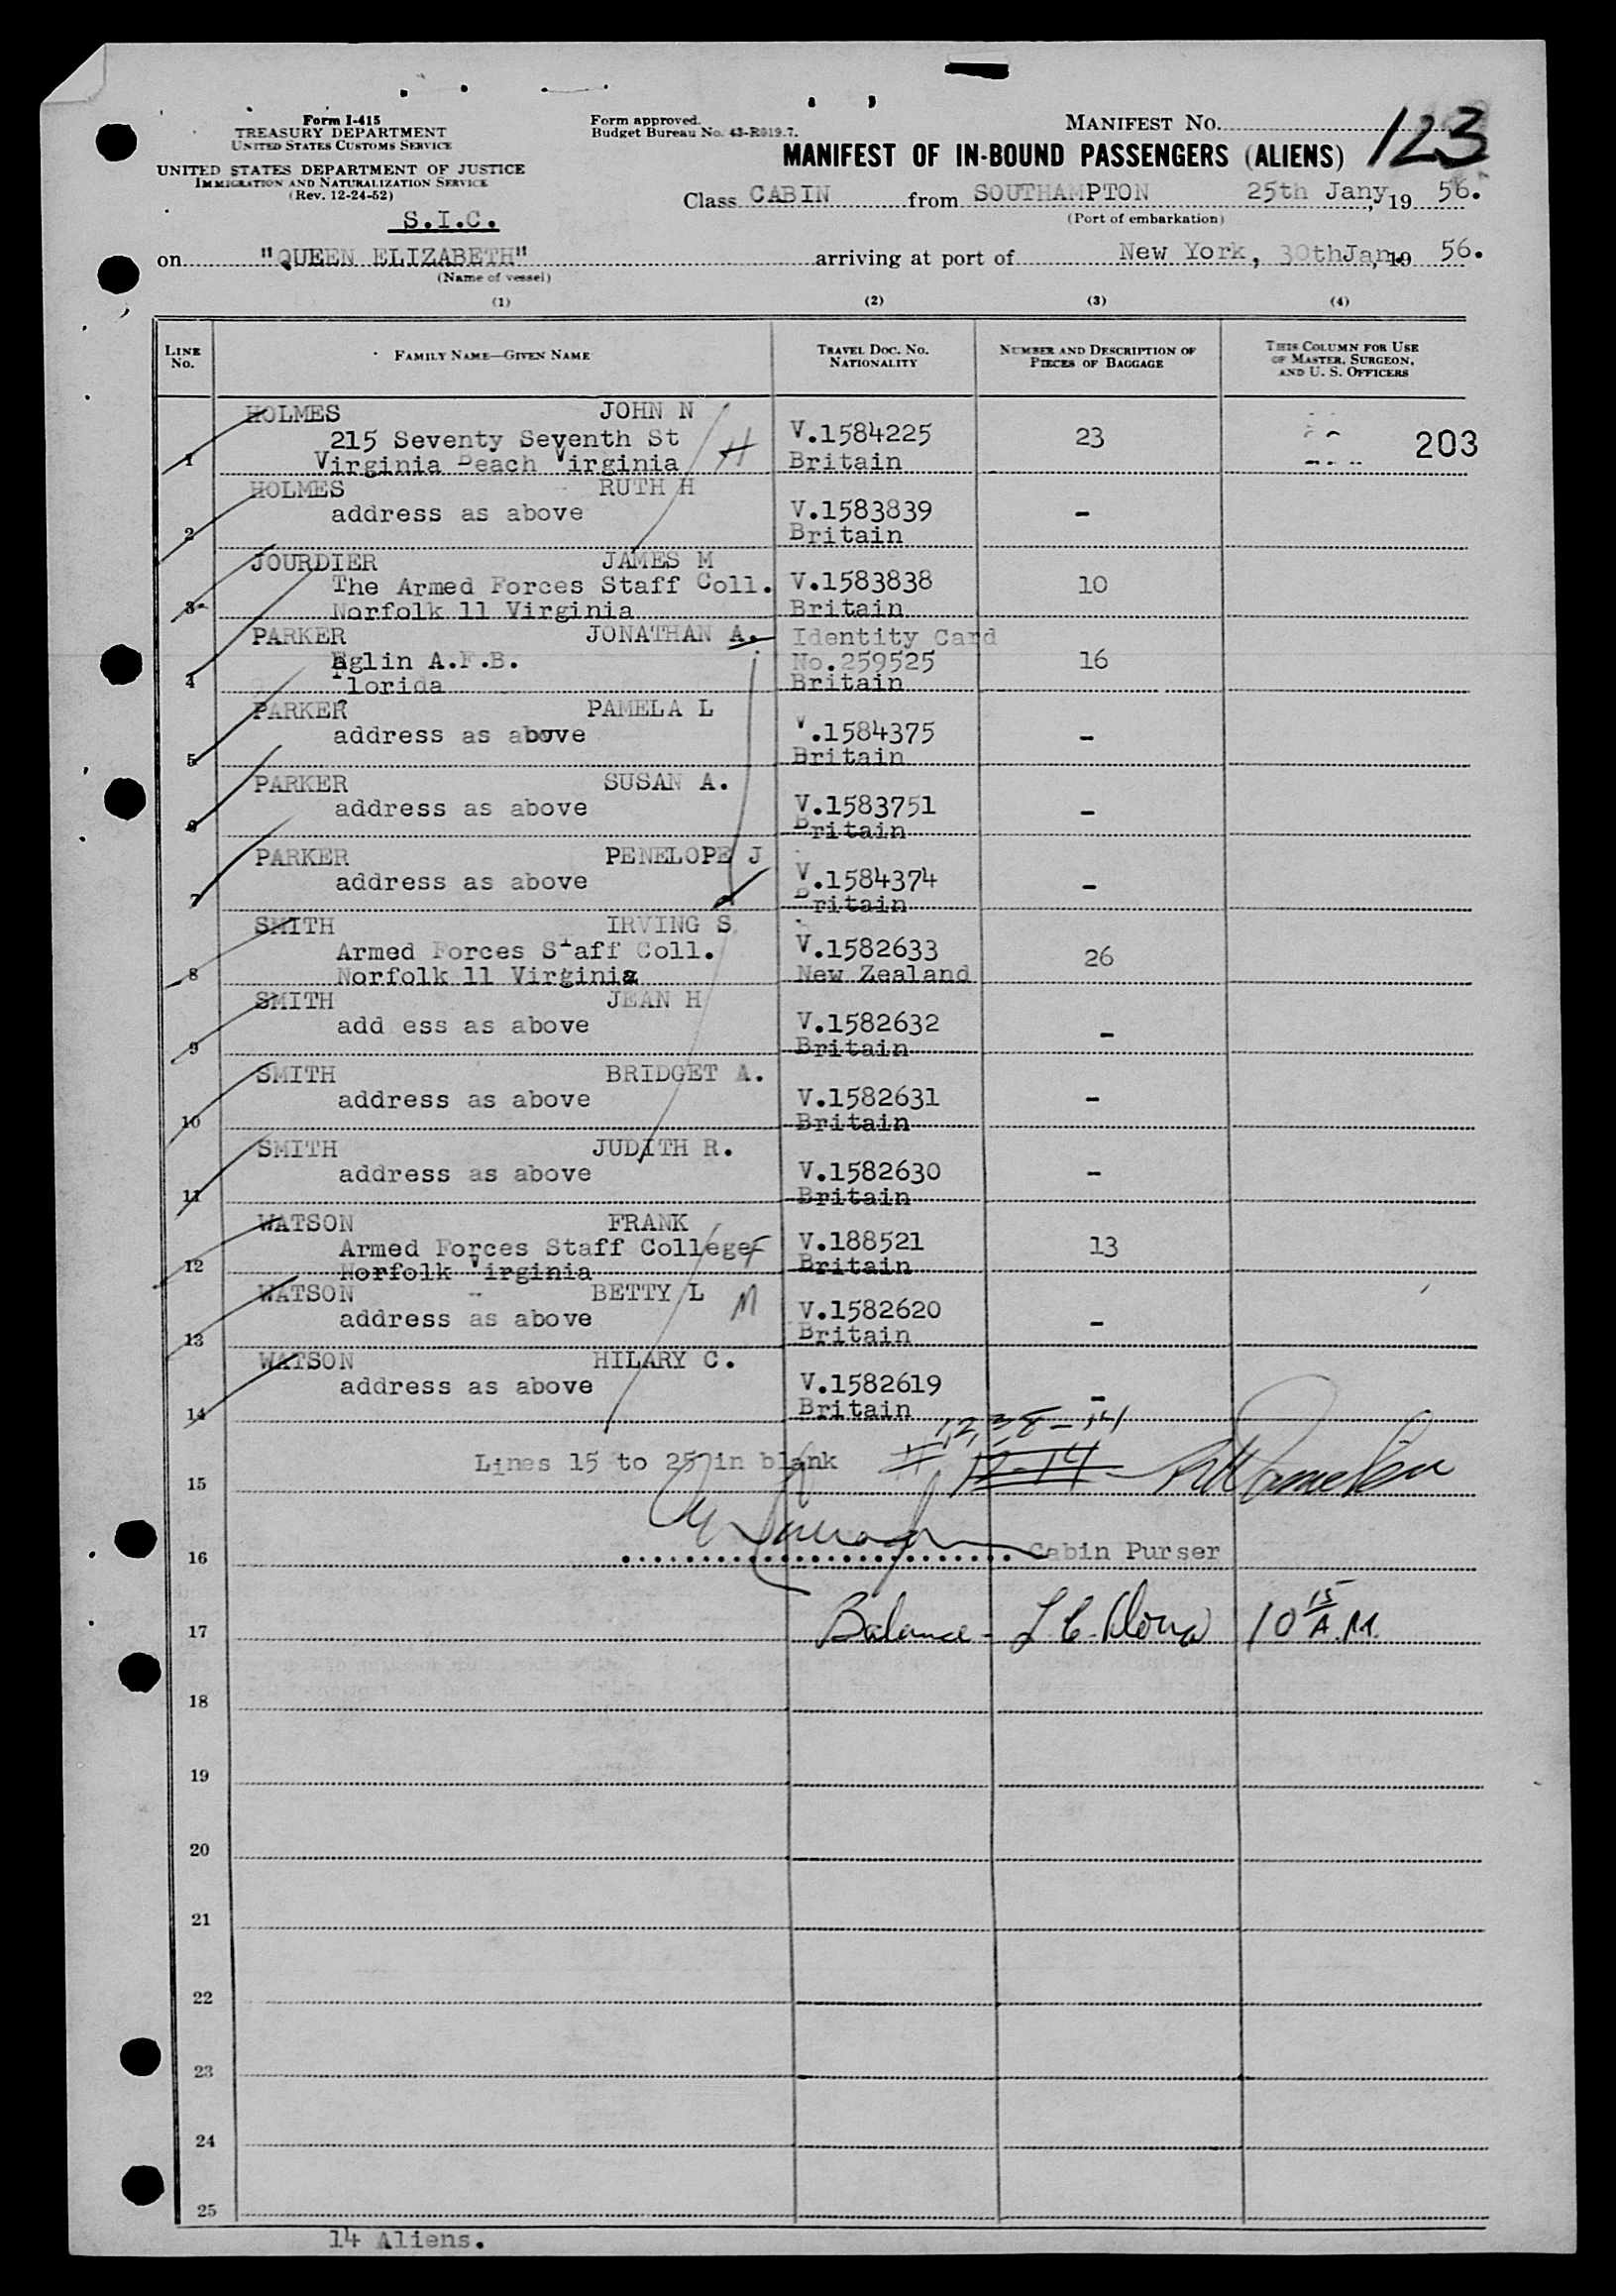 Form I-415
TREASURY DEPARTMENT
UNITED STATES CUSTOMS SERVICE
UNITED STATES DEPARTMENT OF JUSTICE
IMMIGRATION AND NATURALIZATION SERVICE
(Rev. 12-24-52)
S.I.C.
Form approved.
Budget Bureau No. 43-R019.7.
MANIFEST No. 123
MANIFEST OF IN-BOUND PASSENGERS (ALIENS)
Class CABIN from SOUTHAMPTON 25th Jany, 19 56.
(Port of embarkation)
on "QUEEN ELIZABETH" arriving at port of New York, 30thJan. 19 56.
(Name of vessel)
(1) (2) (3) (4)
LINE No. FAMILY NAME—GIVEN NAME TRAVEL DOC. NO. NATIONALITY NUMBER AND DESCRIPTION OF PIECES OF BAGGAGE THIS COLUMN FOR USE OF MASTER, SURGEON, AND U. S. OFFICERS
HOLMES JOHN N
215 Seventy Seventh St V.1584225 23 203
1 Virginia Beach Virginia H Britain
HOLMES RUTH H
2 address as above V.1583839 -
Britain
JOURDIER JAMES M
The Armed Forces Staff Coll. V.1583838 10
3 Norfolk 11 Virginia Britain
PARKER JONATHAN A. Identity Card
Eglin A.F.B. No.259525 16
4 Florida Britain
PARKER PAMELA L
address as above V.1584375 -
5 Britain
PARKER SUSAN A.
address as above V.1583751 -
6 Britain
PARKER PENELOPE J
address as above V.1584374 -
7 Britain
SMITH IRVING S
Armed Forces Staff Coll. V.1582633 26
8 Norfolk 11 Virginia New Zealand
SMITH JEAN H
add ess as above V.1582632 -
9 Britain
SMITH BRIDGET A.
address as above V.1582631 -
10 Britain
SMITH JUDITH R.
address as above V.1582630 -
11 Britain
WATSON FRANK
Armed Forces Staff College F V.188521 13
12 Norfolk Virginia Britain
WATSON BETTY L M
address as above V.1582620 -
13 Britain
WATSON HILARY C.
address as above V.1582619 -
14 Britain
# 1,2,3,8-14
Lines 15 to 25 in blank 12-14
15
16 Cabin Purser
17 Balance - 10 15 A.M.
18
19
20
21
22
23
24
25
14 Aliens.